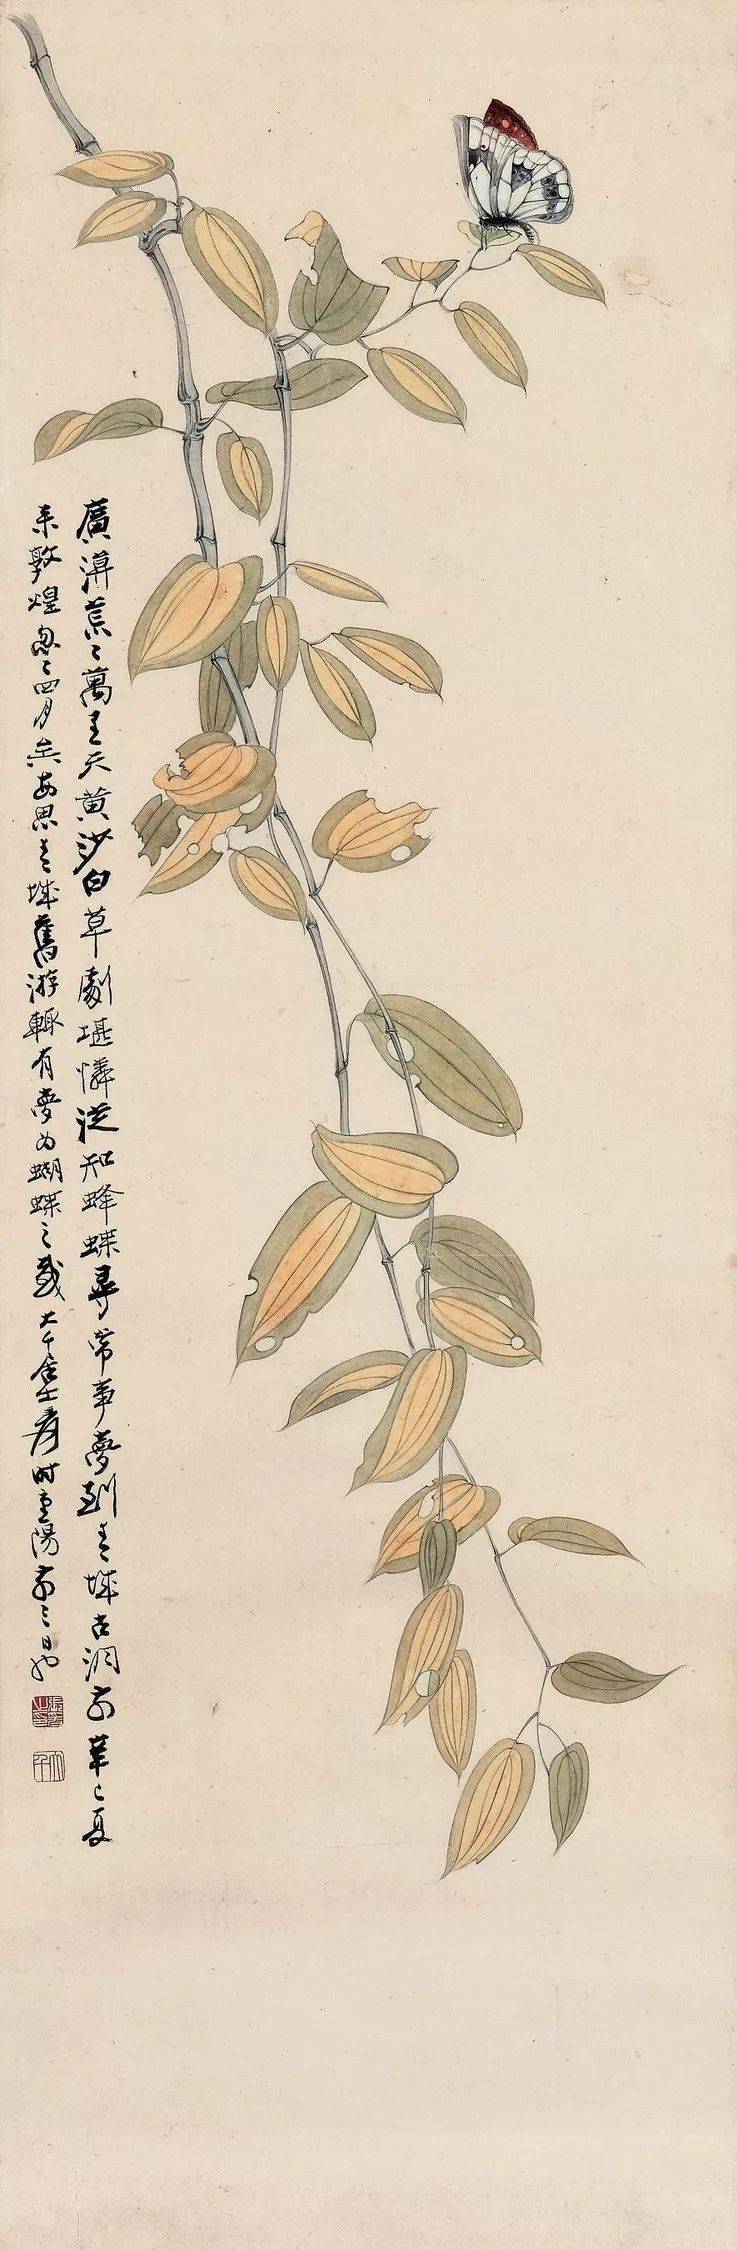 廣漠荒荒萬里天黄沙白草劇堪憐從知蜂蝶尋常事夢到青城古洞前辛巳夏
來敦煌忽忽四月矣每思青城舊游輒有夢為蝴蝶之感大千居士爰时重陽前三日也
張爰之印
大千